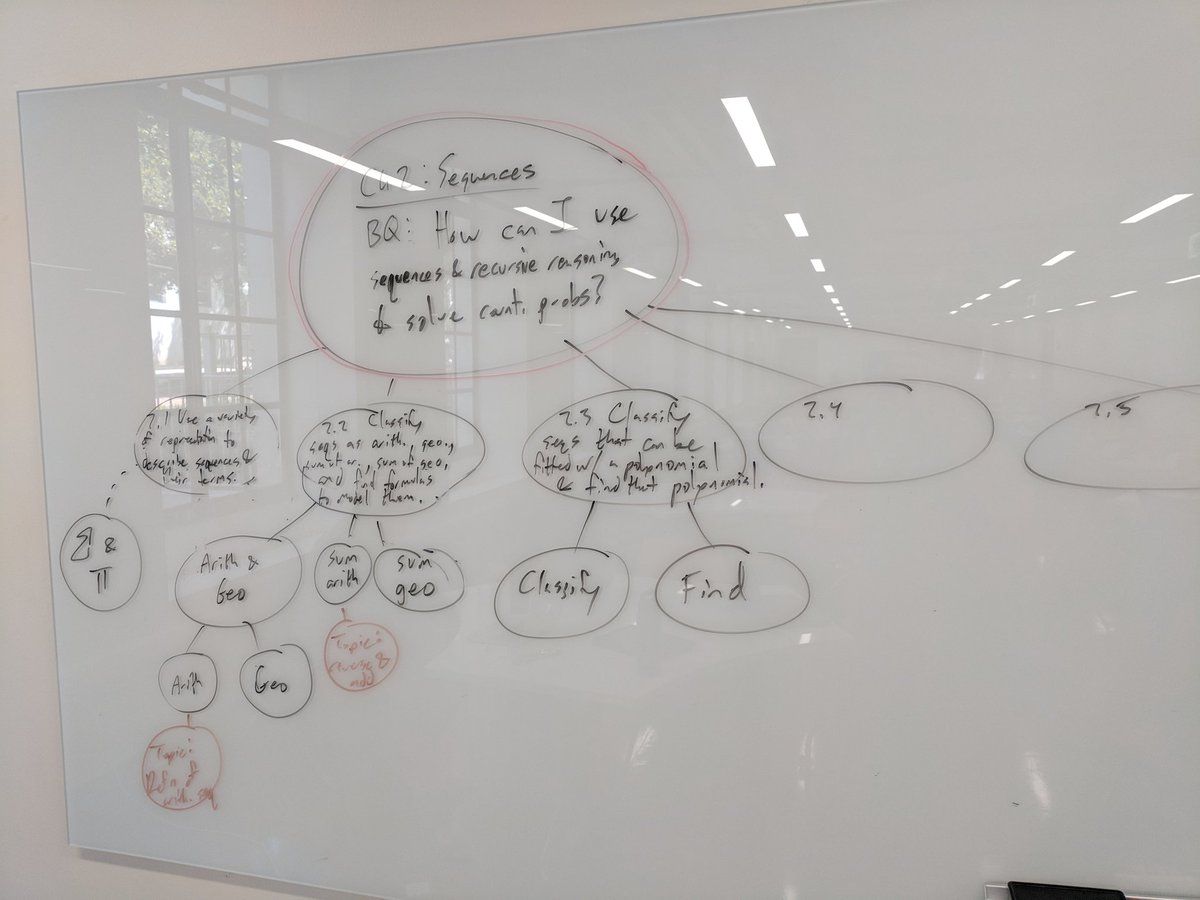 Ch 2: Sequences
BQ: How can I use
sequences & recursive reasoning
to solve count. probs?
2.1 Use a variety
of representation to
describe sequences &
their terms.
2.2 Classify
seqs as arith., geo.,
sum of ari., sum of geo,
and find formulas
to model them.
2.3 Classify
seqs that can be
fitted w/ a polynomial
& find that polynomial.
2.4
2.5
Σ &
Π
Arith &
Geo
sum
arith
sum
geo
Classify
Find
Arith
Geo
Topic:
reverse &
add
Topic:
Defn of
arith. seq